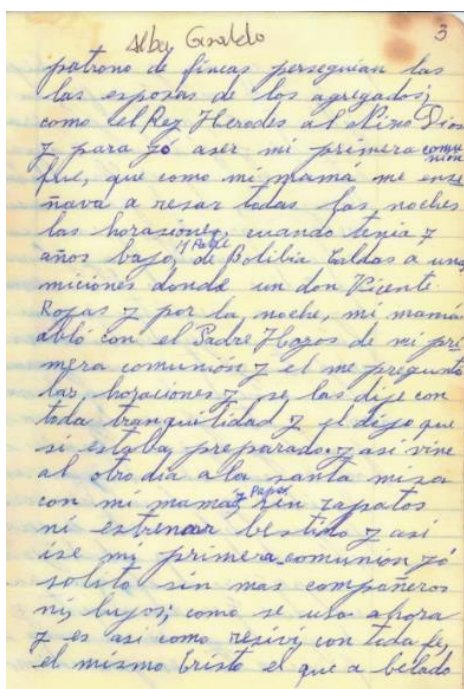 Alba Giraldo
3
patrono de fincas perseguian las
las esposas de los agregados;
como el Rey Herodes al Nino Dios
y para yó aser mi primera comu
nion
fue, que como mi mamá me ense
ñava a resar todas las noches
las horasiones, cuando tenia 7
años bajo, y Padre de Bolibia Caldas a una
miciones donde un don Vicente
Rojas y por la noche, mi mamá
abló con el Padre Hoyos de mi pri
mera comunión y el me preguntó
las, horaciones y se las dije con
toda tranquilidad y el dijo que
si estaba preparado. y asi vine
al otro dia a la santa misa
con mi mama, y Papá, sin zapatos
ni estrenar bestido y asi
ise mi primera comunión yó
solito sin mas compañeros
ni, lujos; como se usa ahora
y es asi como resivi, con toda fe,
el mismo Cristo el que a belado